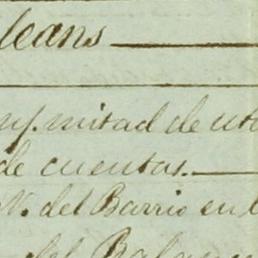 leans
mitad de
de cuentas.
del Barrio en
del Balan